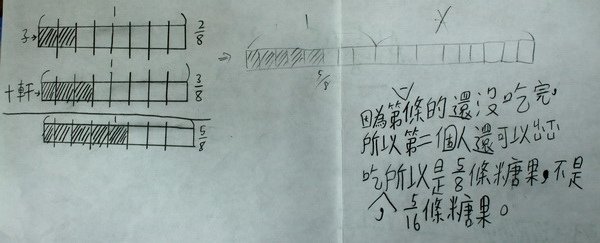 1
子→ 2/8
1
+軒→ 3/8
1
5/8
⇒ 1
5/8
因為第一條的還沒吃完,
所以第二個人還可以
吃,所以是 5/8 條糖果,不是
5/16 條糖果。